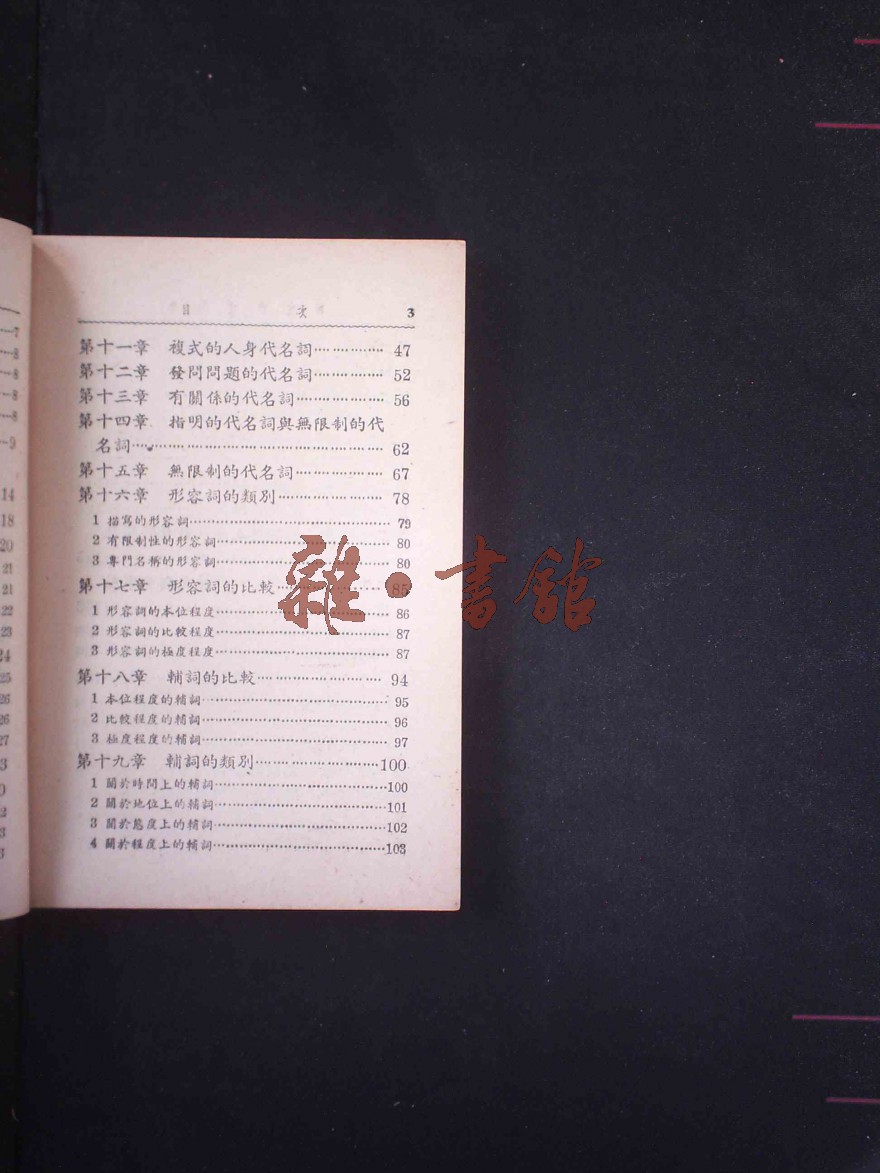 目 次 3
第十一章 複式的人身代名詞……………… 47
第十二章 發問問題的代名詞……………… 52
第十三章 有關係的代名詞………………… 56
第十四章 指明的代名詞與無限制的代
名詞………………………………………… 62
第十五章 無限制的代名詞………………… 67
第十六章 形容詞的類別…………………… 78
1 描寫的形容詞…………………………… 79
2 有限制性的形容詞……………………… 80
3 專門名稱的形容詞……………………… 80
第十七章 形容詞的比較…………………… 85
1 形容詞的本位程度……………………… 86
2 形容詞的比較程度……………………… 87
3 形容詞的極度程度……………………… 87
第十八章 輔詞的比較……………………… 94
1 本位程度的輔詞………………………… 95
2 比較程度的輔詞………………………… 96
3 極度程度的輔詞………………………… 97
第十九章 輔詞的類別……………………100
1 關於時間上的輔詞………………………100
2 關於地位上的輔詞………………………101
3 關於態度上的輔詞………………………102
4 關於程度上的輔詞………………………103
雜·書館
7
8
8
8
8
9
14
18
20
21
21
22
23
24
25
26
26
27
3
0
2
3
3